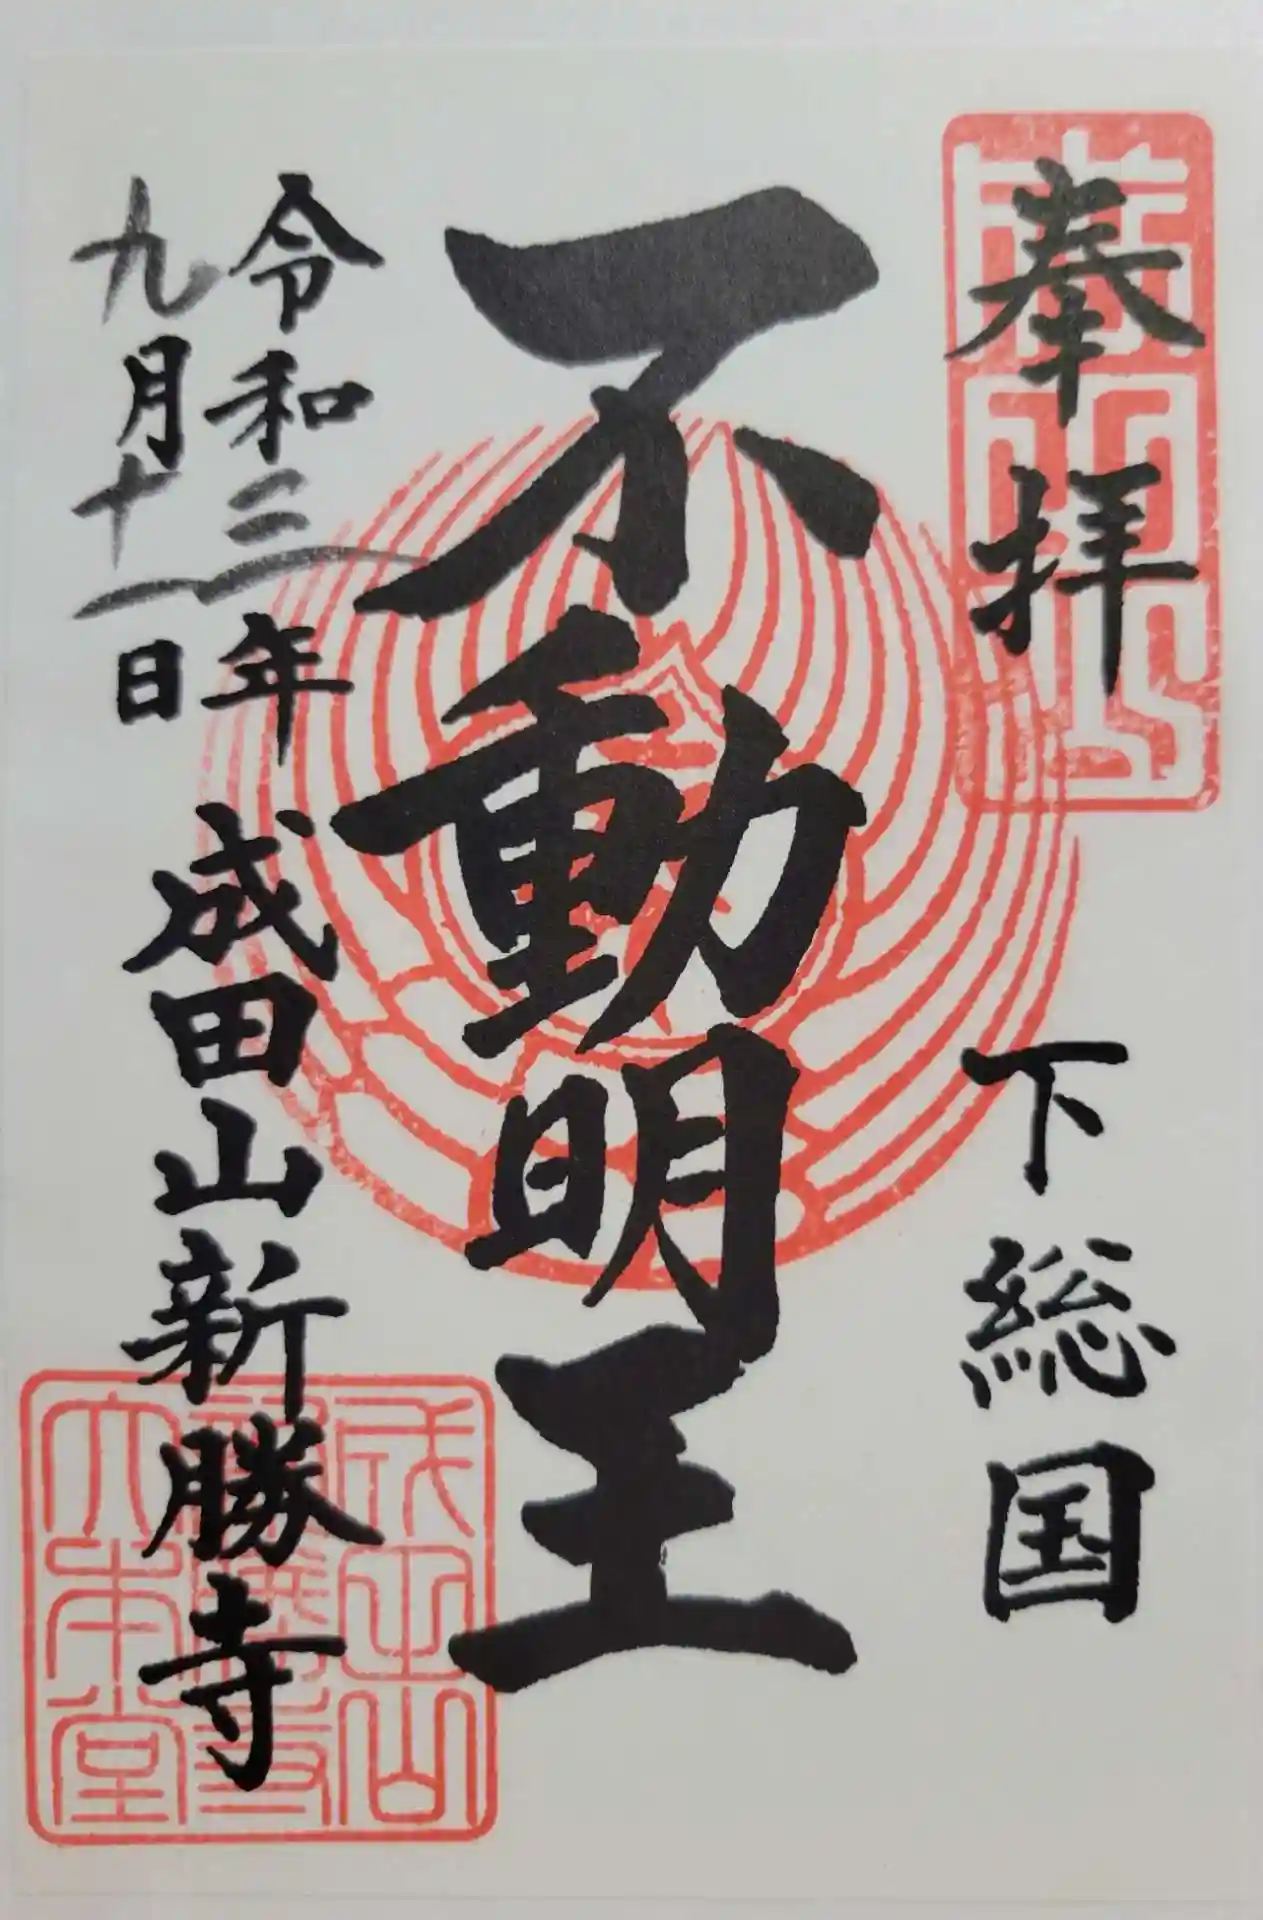 奉拝
下総国
不動明王
令和三年
九月十一日
成田山新勝寺
成田山
新勝寺
大本堂